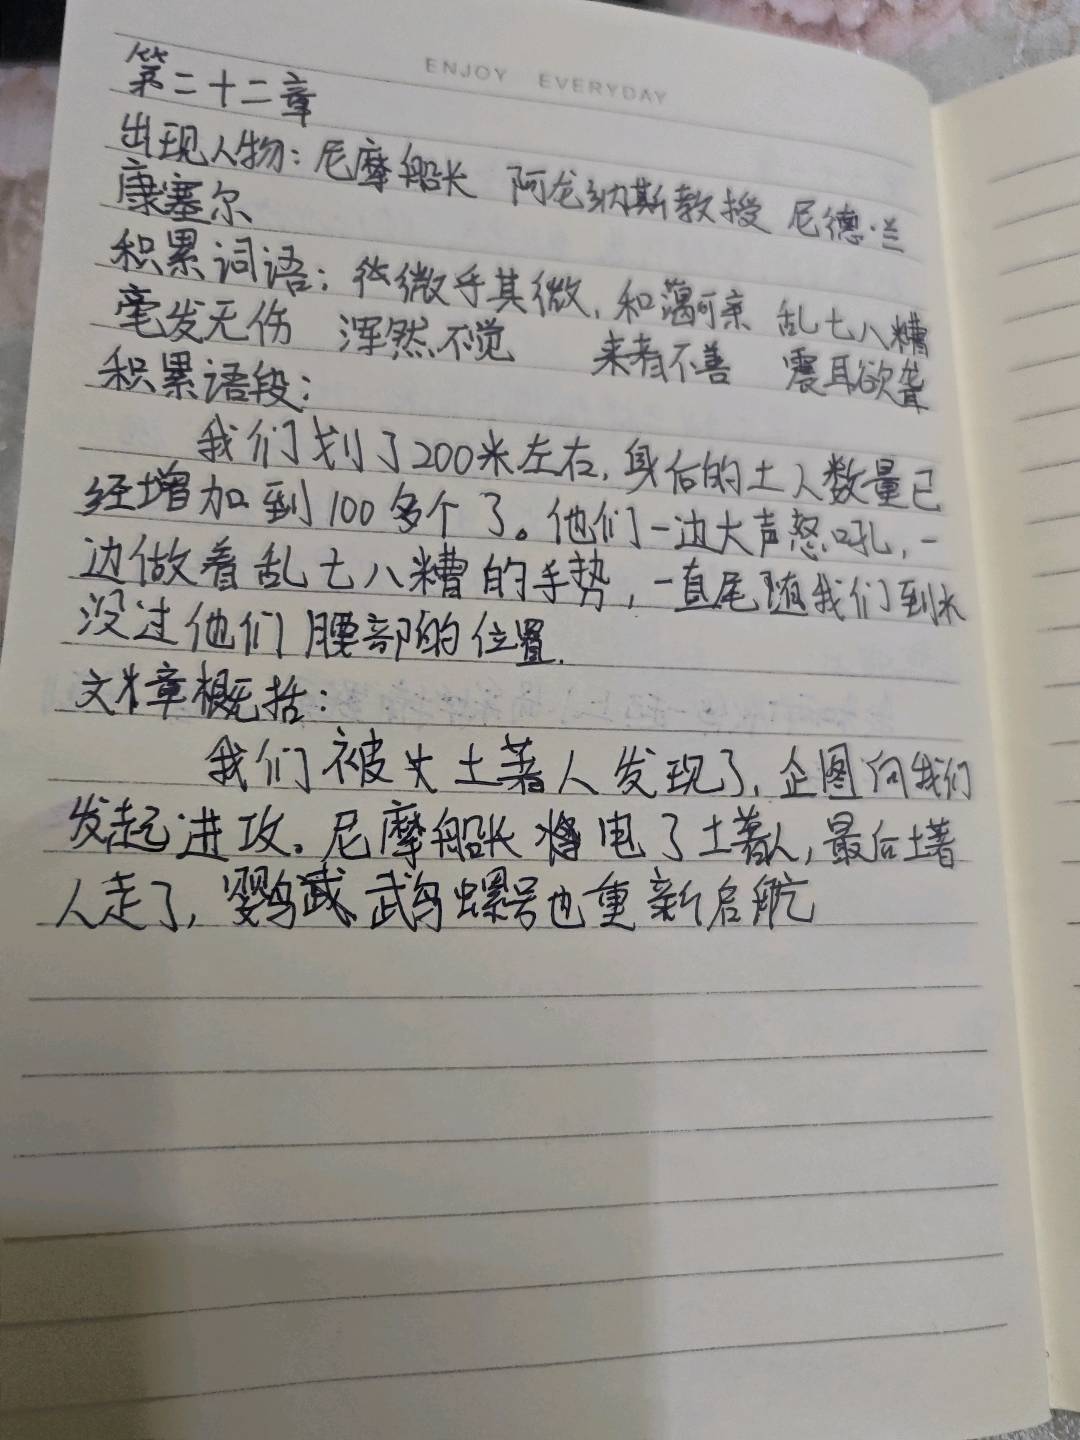 ENJOY EVERYDAY
第二十二章
出现人物：尼摩船长 阿龙纳斯教授 尼德·兰
康塞尔
积累词语：微乎其微，和蔼可亲 乱七八糟
毫发无伤 浑然不觉 来者不善 震耳欲聋
积累语段：
我们划了200米左右，身后的土人数量已
经增加到100多个了。他们一边大声怒吼，一
边做着乱七八糟的手势，一直尾随我们到水
没过他们腰部的位置.
文章概括：
我们被土著人发现了，企图向我们
发起进攻。尼摩船长电了土著人，最后土著
人走了，鹦鹉螺号也重新启航